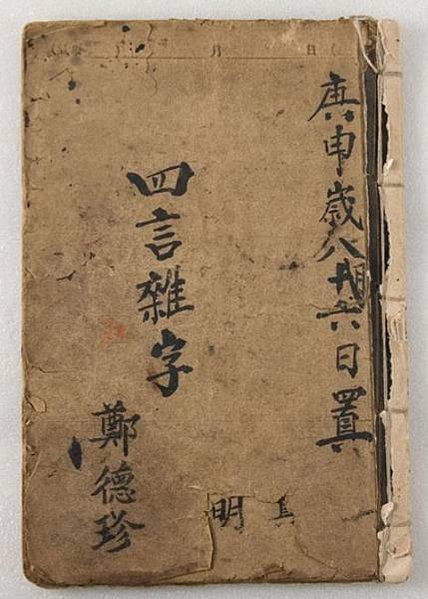 庚申歲八月十六日置
四言雜字
鄭德珍
明
月 日